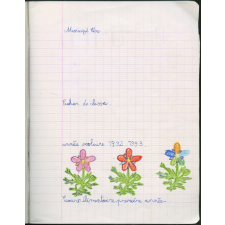 Cahier de classe.
année scolaire 1932_1933
Cours élémentaire première année.